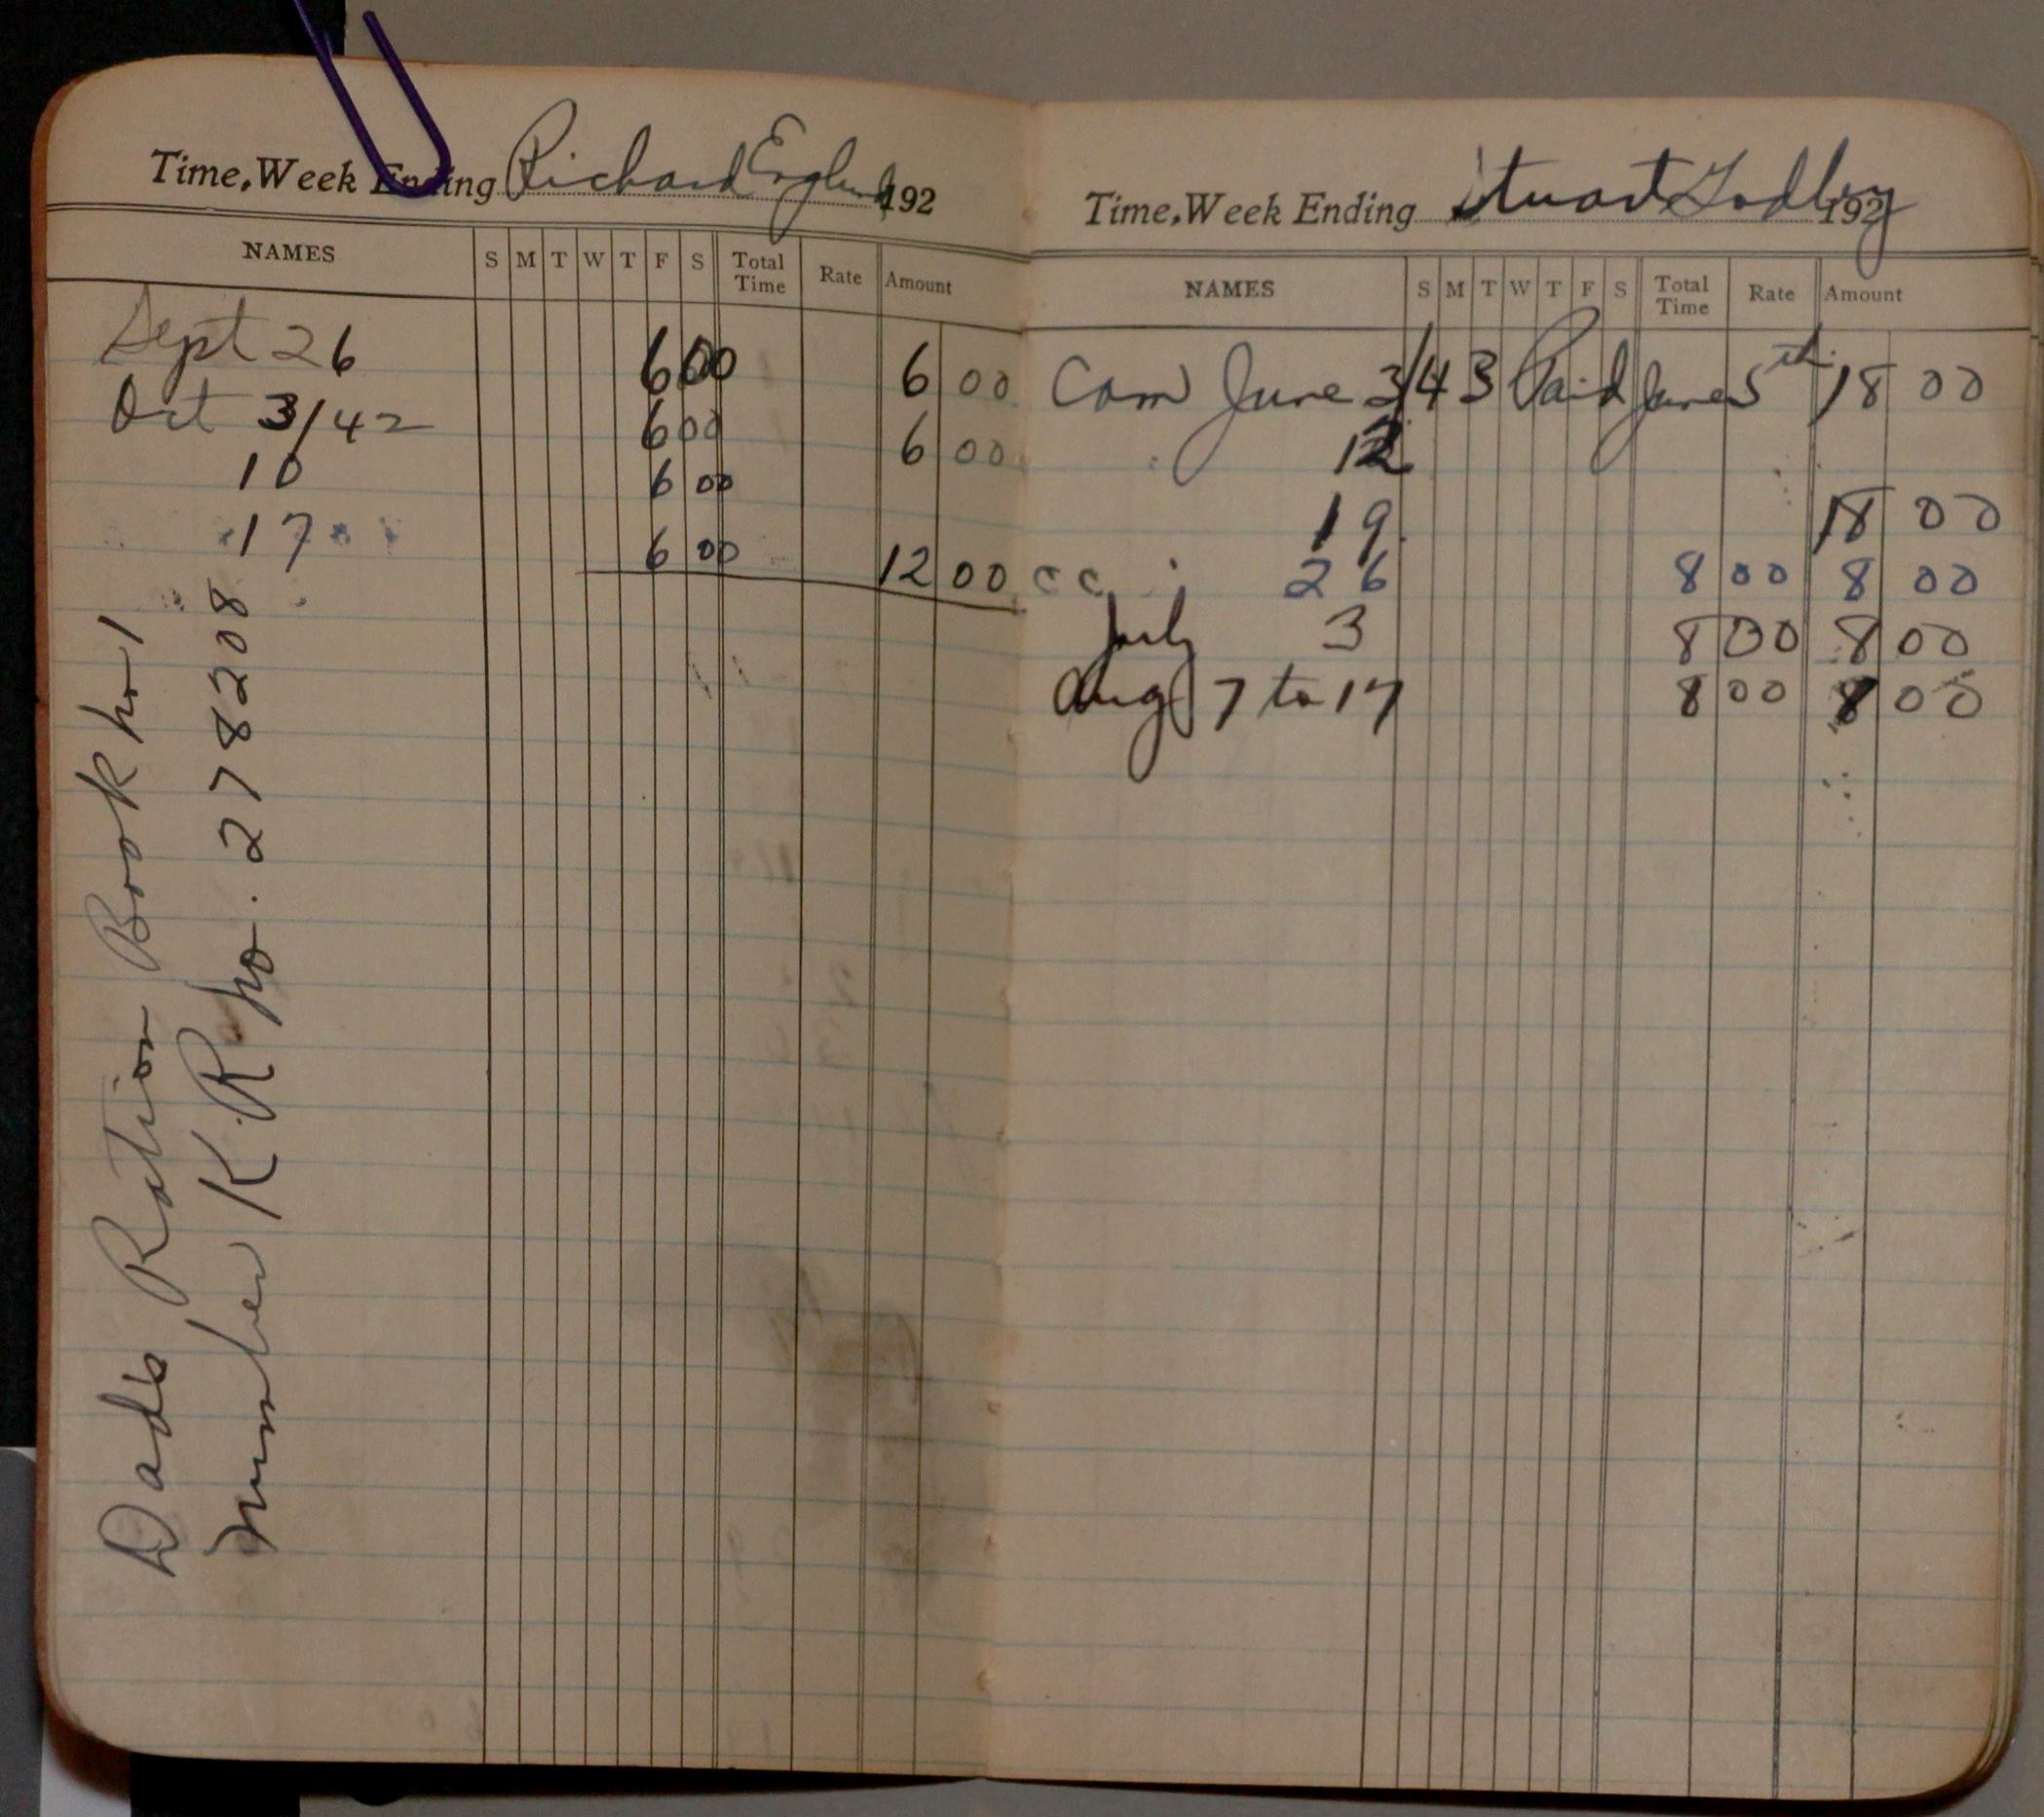 Time, Week Ending Richard England 192
NAMES S M T W T F S Total Time Rate Amount
Sept 26 6 00 6 00
Oct 3/42 6 00 6 00
10 6 00
17 6 00 12 00
Dads Ration Book no 1
number K.R no. 278208
Time, Week Ending Stuart Godley 192
NAMES S M T W T F S Total Time Rate Amount
Com June 3/43 Paid June 5th 18 00
12
19 18 00
cc 26 8 00 8 00
July 3 8 00 8 00
Aug 7 to 17 8 00 8 00